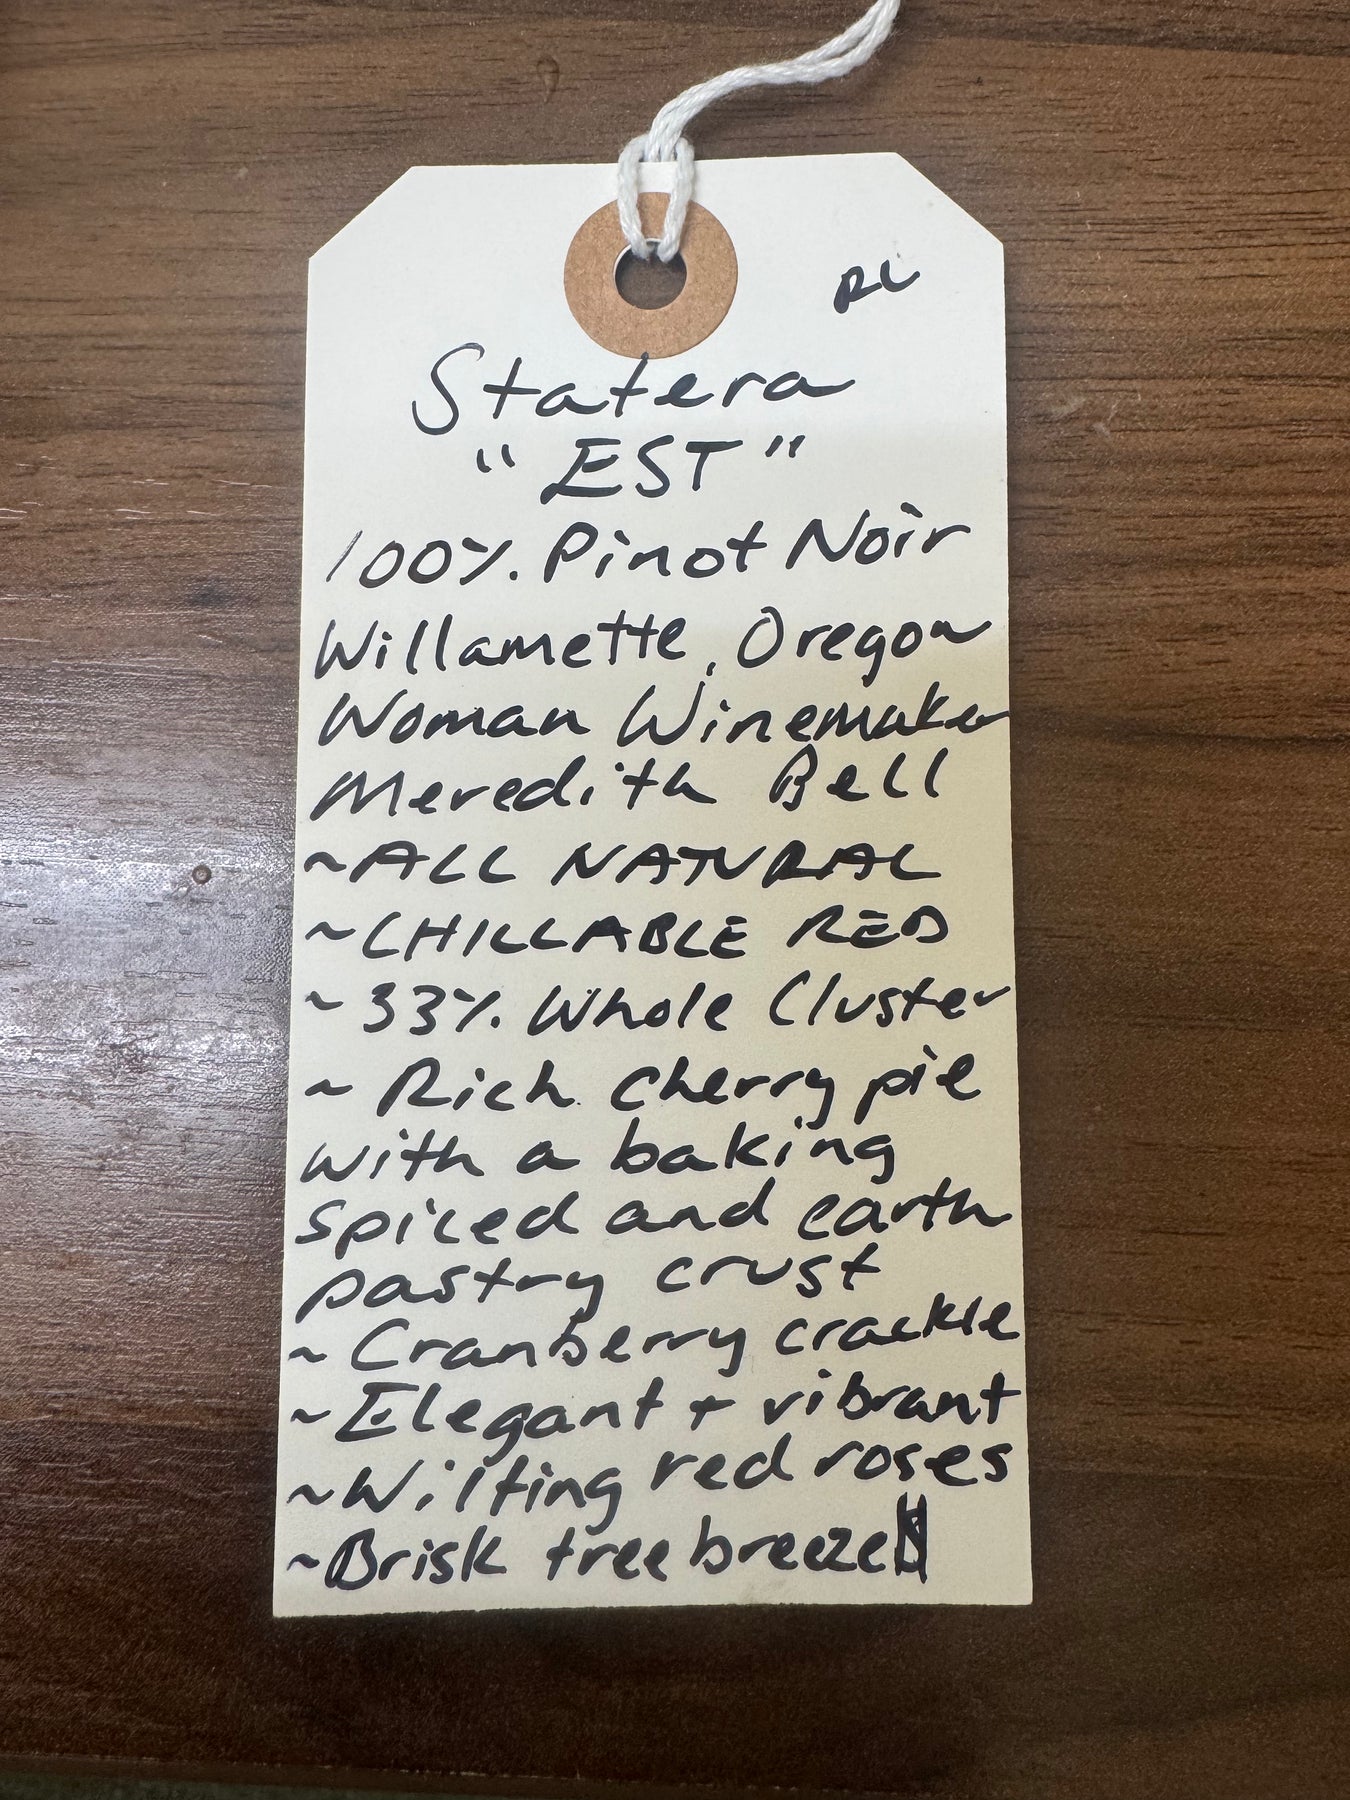 RL
Statera
"EST"
100% Pinot Noir
Willamette, Oregon
Woman Winemaker
Meredith Bell
~ALL NATURAL
~CHILLABLE RED
~33% Whole Cluster
~ Rich cherry pie
with a baking
spiced and earth
pastry crust
~ Cranberry crackle
~Elegant + vibrant
~Wilting red roses
~Brisk tree breeze